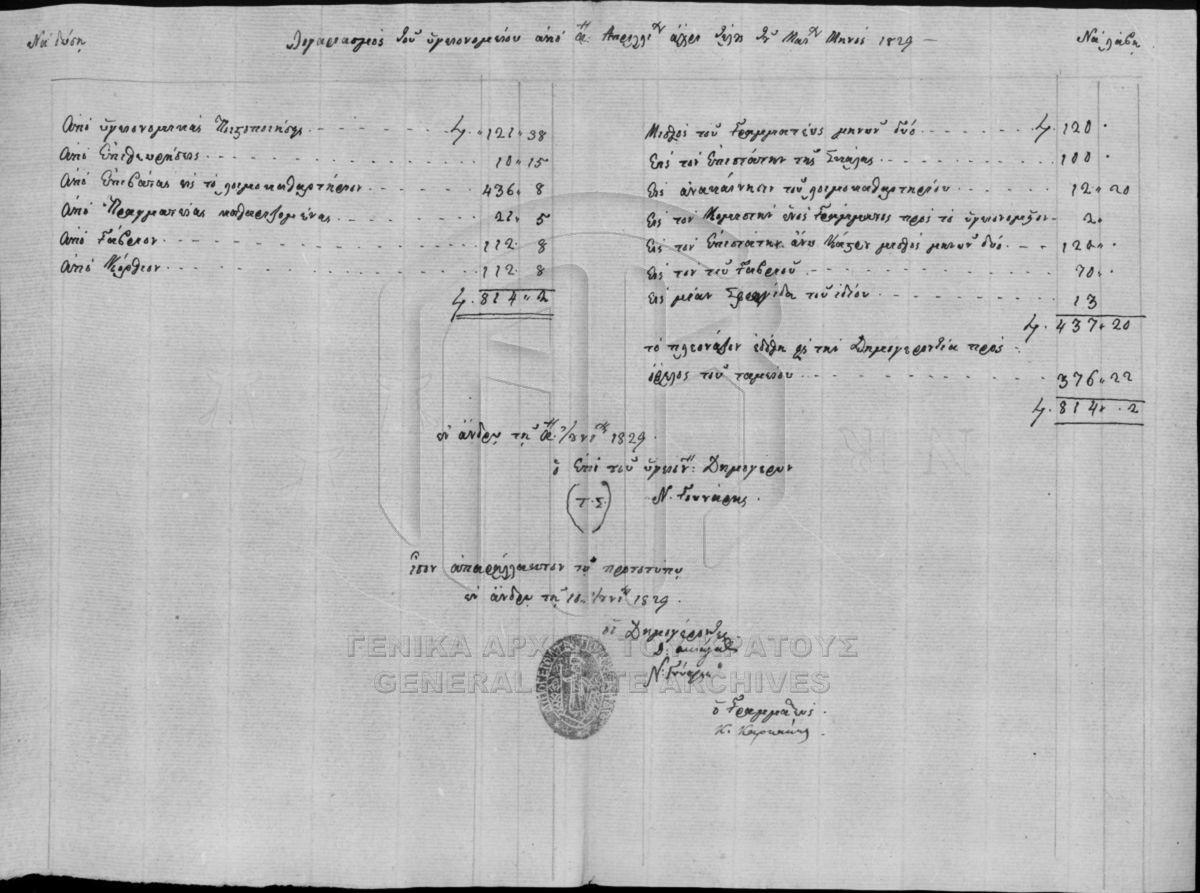 Νὰ δώσῃ
Λογαριασμὸς τοῦ ὑγειονομείου ἀπὸ α: Ἀπριλλίου ἄχρι τέλους τοῦ Μαΐου Μηνὸς 1829 —
Νὰ λάβῃ
Ἀπὸ ὑγειονομικὰς Πιστοποιήσεις 121 " 38
Ἀπὸ Ἐπιθεωρήσεις 10 " 15
Ἀπὸ Ἐπιβάτας εἰς τὸ λοιμοκαθαρτήριον 436 " 8
Ἀπὸ Πραγματείας καθαριζομένας 21 " 5
Ἀπὸ Γάβριον 112 " 8
Ἀπὸ Κόρθιον 112 " 8
814 " 2
Μισθὸς τοῦ Γραμματέως μηνῶν δύο 120 "
Εἰς τὸν Ἐπιστάτην τῆς Σκάλης 100 "
Εἰς ἀνακαίνησιν τοῦ λοιμοκαθαρτηρίου 12 " 20
Εἰς τὸν Κομιστὴν ἑνὸς Γράμματος πρὸς τὸ ὑγειονομεῖον 2 "
Εἰς τὸν Ἐπιστάτην ἄνω Κάστρου μισθὸς μηνῶν δύο 120 "
Εἰς τὸν τοῦ Γαβρίου 70 "
Εἰς μίαν Σφραγίδα τοῦ ἰδίου 13
437 " 20
τὸ πλεονάζον ἐδόθη εἰς τὴν Δημογεροντία πρὸς
ὄφελος τοῦ ταμείου 376 " 22
814 " 2
ἐν Ἄνδρῳ τῇ α: Ἰουνίου 1829.
ὁ ἐπὶ τοῦ ὑγειον: Δημογέρων
(Τ.Σ.) Ν. Γουνάρης.
Ἴσον ἀπαράλλακτον τῷ πρωτοτύπῳ
ἐν Ἄνδρῳ τῇ Ἰουνίου 1829.
οἱ Δημογέροντες
ὁ Γραμματεύς.
ΓΕΝΙΚΑ ΑΡΧΕΙΑ ΤΟΥ ΚΡΑΤΟΥΣ
GENERAL STATE ARCHIVES